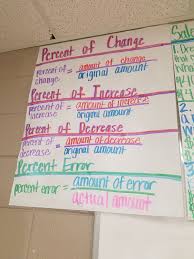 Percent of Change
percent of change = amount of change / original amount
Percent of Increase
percent of increase = amount of increase / original amount
Percent of Decrease
percent of decrease = amount of decrease / original amount
Percent Error
percent error = amount of error / actual amount